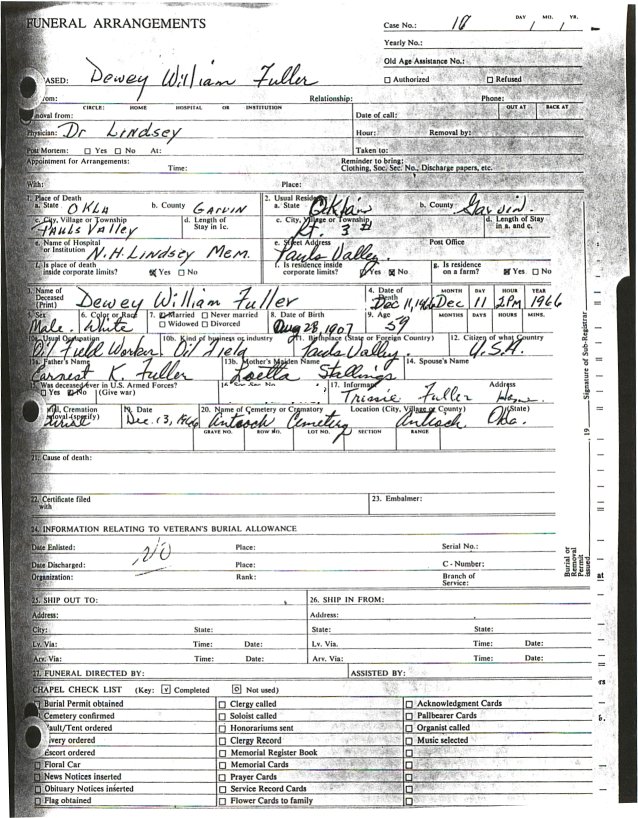 FUNERAL ARRANGEMENTS
Case No.: 18 DAY / MO. / YR.
Yearly No.:
Old Age Assistance No.:
ASED: Dewey William Fuller
Authorized Refused
rom: Relationship: Phone:
CIRCLE: HOME HOSPITAL OR INSTITUTION OUT AT BACK AT
moval from: Date of call:
Physician: Dr Lindsey Hour: Removal by:
Post Mortem: Yes No At: Taken to:
Appointment for Arrangements: Reminder to bring:
Time: Clothing, Soc. Sec. No., Discharge papers, etc.
With: Place:
1. Place of Death 2. Usual Residence
a. State OKLA b. County Garvin a. State b. County Garvin
c. City, Village or Township d. Length of Stay in 1c. c. City, Village or Township d. Length of Stay in a. and c.
Pauls Valley Rt. 3
e. Name of Hospital or Institution (Print) N.H. Lindsey Mem. e. Street Address Pauls Valley Post Office
f. Is place of death inside corporate limits? Yes No f. Is residence inside corporate limits? Yes No g. Is residence on a farm? Yes No
3. Name of Deceased (Print) Dewey William Fuller 4. Date of Death Dec 11, 1966 MONTH Dec DAY 11 HOUR 2PM YEAR 1966
5. Sex 6. Color or Race 7. Married Never married 8. Date of Birth 9. Age MONTHS DAYS HOURS MINS.
Male. White Widowed Divorced Aug 28, 1907 59
10a. Usual Occupation 10b. Kind of business or industry 11. Birthplace (State or Foreign Country) 12. Citizen of what Country
Oil Field Worker Oil Field Pauls Valley. U.S.A.
13a. Father's Name 13b. Mother's Maiden Name 14. Spouse's Name
Earnest K. Fuller Loetta Stallings
15. Was deceased ever in U.S. Armed Forces? 16. Soc Sec No. 17. Informant Address
Yes No (Give war) Fuller
Burial, Cremation Removal (specify) 19. Date 20. Name of Cemetery or Crematory Location (City, Village or County) (State)
Burial Dec. 13, 1966 Antioch Cemetery Antioch Okla.
GRAVE NO. ROW NO. LOT NO. SECTION RANGE
21. Cause of death:
22. Certificate filed with 23. Embalmer:
24. INFORMATION RELATING TO VETERAN'S BURIAL ALLOWANCE
Date Enlisted: NO Place: Serial No.:
Date Discharged: Place: C - Number:
Organization: Rank: Branch of Service:
25. SHIP OUT TO: 26. SHIP IN FROM:
Address: Address:
City: State: State: State:
Lv. Via: Time: Date: Lv. Via. Time: Date:
Arv. Via: Time: Date: Arv. Via: Time: Date:
27. FUNERAL DIRECTED BY: ASSISTED BY:
CHAPEL CHECK LIST (Key: v Completed O Not used)
Burial Permit obtained Clergy called Acknowledgment Cards
Cemetery confirmed Soloist called Pallbearer Cards
Vault/Tent ordered Honorariums sent Organist called
Livery ordered Clergy Record Music selected
Escort ordered Memorial Register Book
Floral Car Memorial Cards
News Notices inserted Prayer Cards
Obituary Notices inserted Service Record Cards
Flag obtained Flower Cards to family
Signature of Sub-Registrar
19
Burial or Removal Permit issued